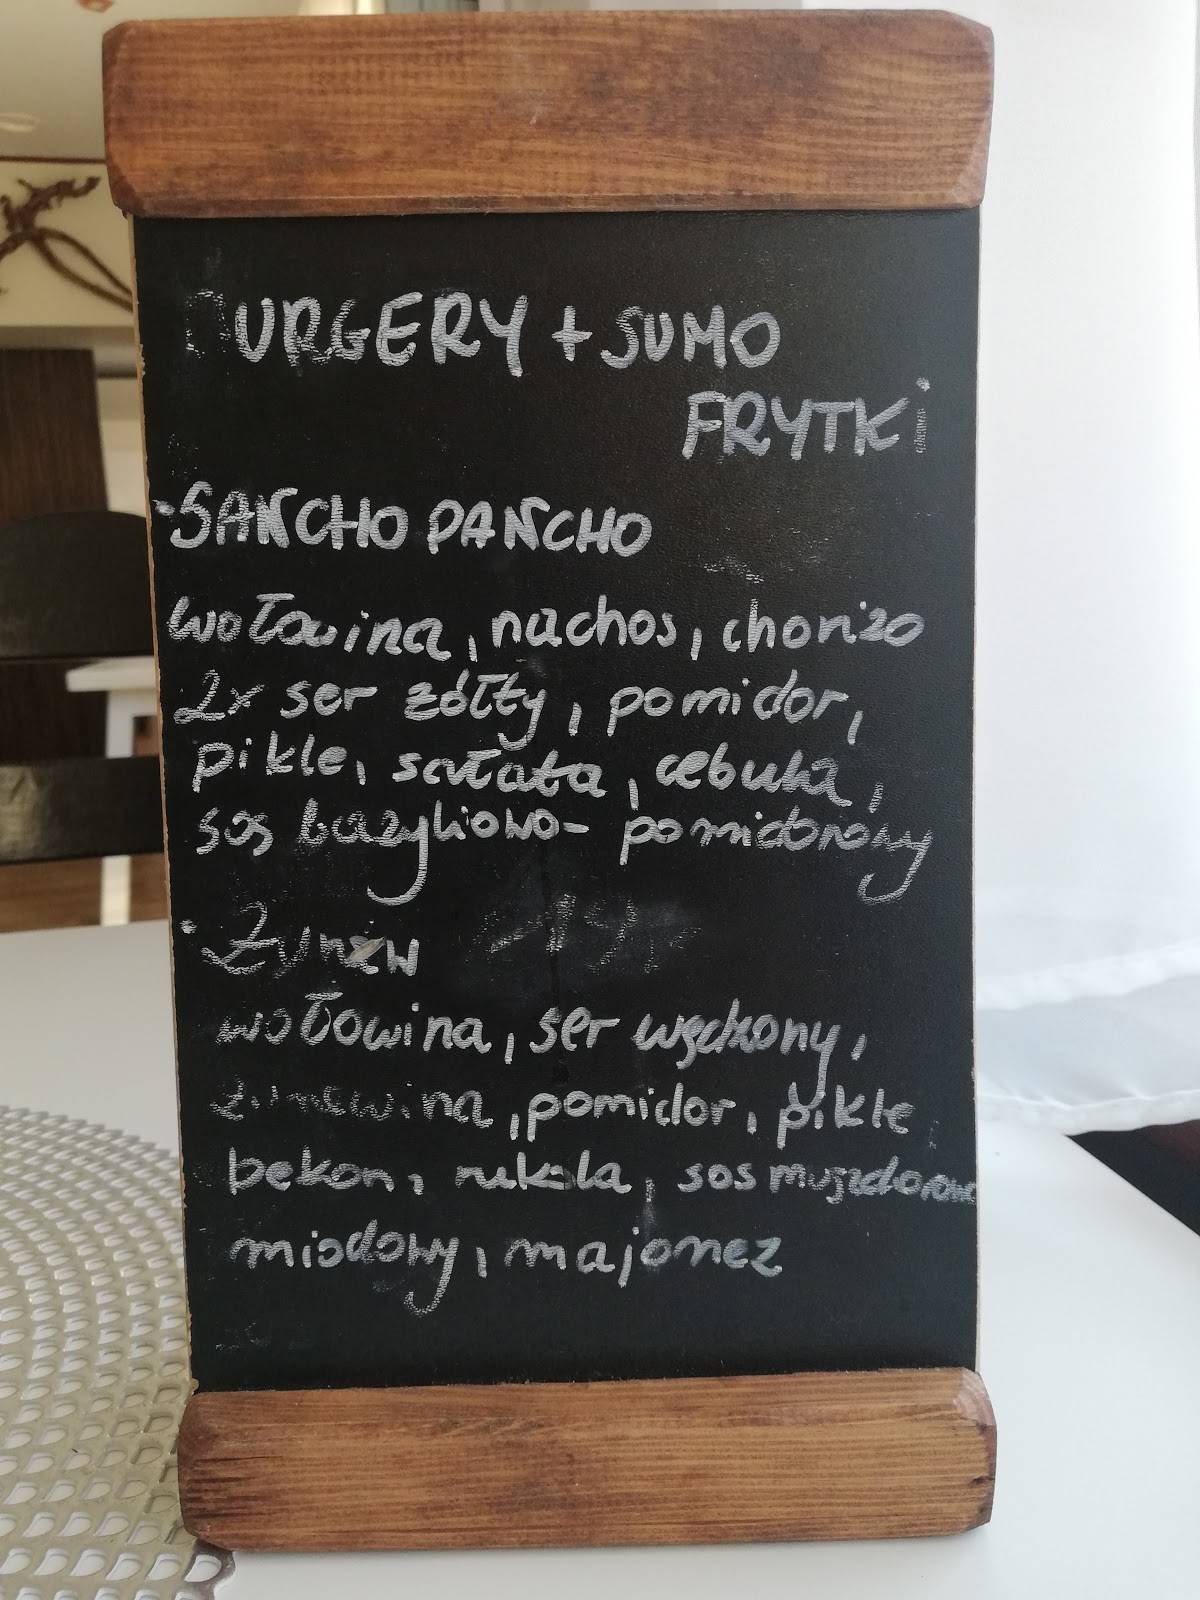 BURGERY + SUMO
FRYTKi
· SANCHO PANCHO
wołowina, nachos, chorizo
2x ser żółty, pomidor,
pikle, sałata, cebula,
sos bazyliowo- pomidorowy
· Żuraw
wołowina, ser wędzony,
żurawina, pomidor, pikle,
bekon, rukola, sos musztardowo
miodowy, majonez